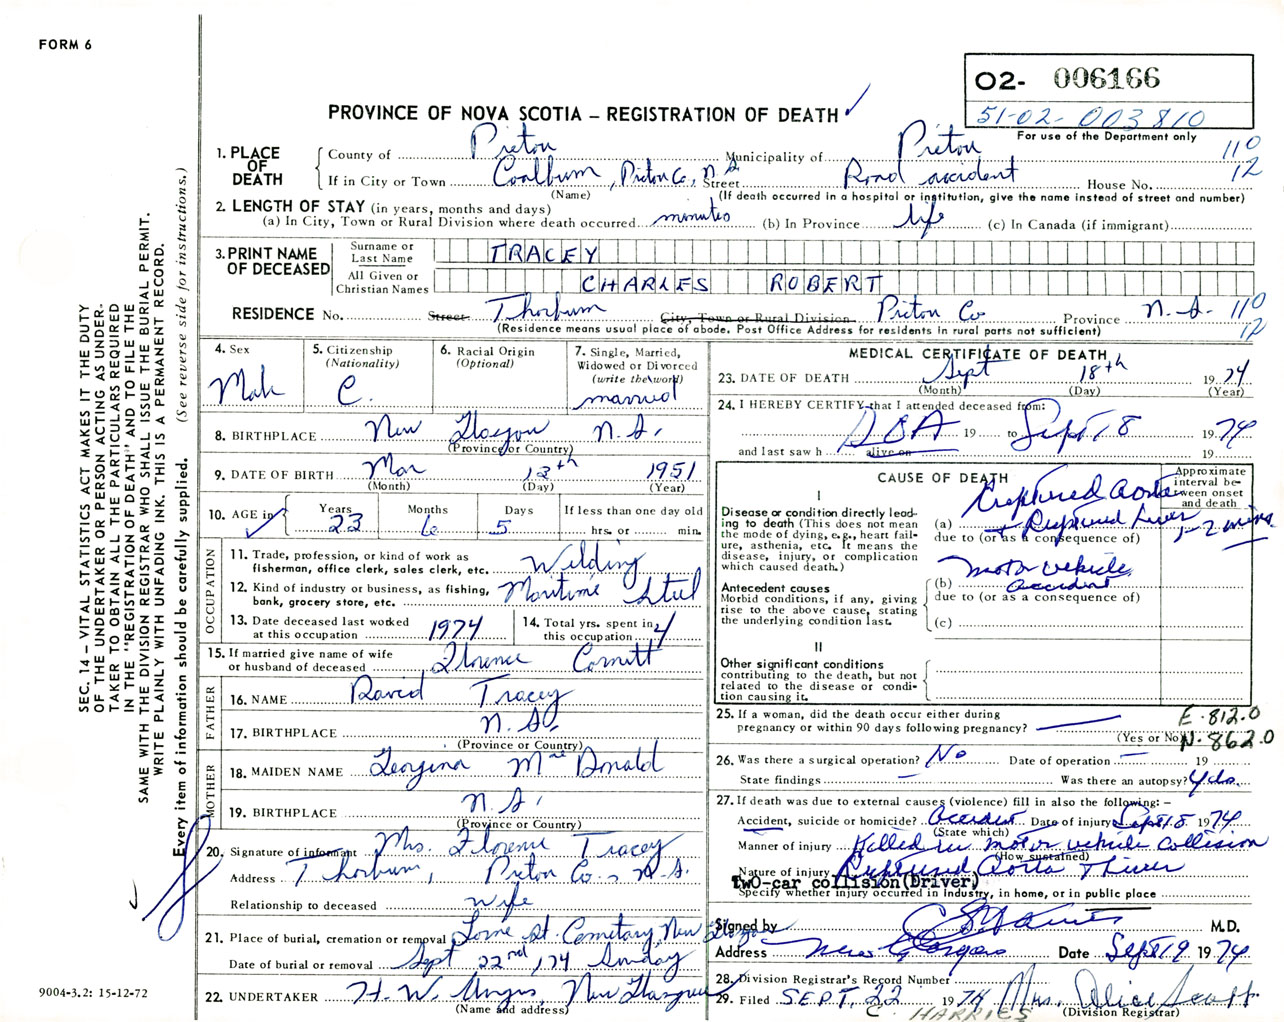 FORM 6
O2- 006166
51-02-003810
For use of the Department only
PROVINCE OF NOVA SCOTIA – REGISTRATION OF DEATH ✓
1. PLACE OF DEATH
County of Pictou Municipality of Pictou 110
If in City or Town Coalburn, Pictou Co., N.S. Street Road accident House No. 12
(Name) (If death occurred in a hospital or institution, give the name instead of street and number)
2. LENGTH OF STAY (in years, months and days)
(a) In City, Town or Rural Division where death occurred minutes (b) In Province life (c) In Canada (if immigrant)
3. PRINT NAME OF DECEASED
Surname or Last Name TRACEY
All Given or Christian Names CHARLES ROBERT
RESIDENCE No. Street Thorburn City, Town or Rural Division Pictou Co Province N.S. 110
(Residence means usual place of abode. Post Office Address for residents in rural parts not sufficient) 12
4. Sex
Male
5. Citizenship
(Nationality)
C.
6. Racial Origin
(Optional)
7. Single, Married,
Widowed or Divorced
(write the word)
married
8. BIRTHPLACE New Glasgow N.S.
(Province or Country)
9. DATE OF BIRTH Mar 13th 1951
(Month) (Day) (Year)
10. AGE in Years Months Days If less than one day old
✓ 23 6 5 hrs. or min.
OCCUPATION
11. Trade, profession, or kind of work as
fisherman, office clerk, sales clerk, etc. Welding
12. Kind of industry or business, as fishing,
bank, grocery store, etc. Maritime Steel
13. Date deceased last worked
at this occupation 1974
14. Total yrs. spent in
this occupation 4
15. If married give name of wife
or husband of deceased Florence Cornett
FATHER
16. NAME David Tracey
17. BIRTHPLACE N.S.
(Province or Country)
MOTHER
18. MAIDEN NAME Georgina MacDonald
19. BIRTHPLACE N.S.
(Province or Country)
20. Signature of informant Mrs. Florence Tracey
Address Thorburn, Pictou Co., N.S.
Relationship to deceased wife
21. Place of burial, cremation or removal Lorne St. Cemetary, New Glasgow
Date of burial or removal Sept 22nd, 74 Sunday
22. UNDERTAKER H. W. Angus, New Glasgow
(Name and address)
MEDICAL CERTIFICATE OF DEATH
23. DATE OF DEATH Sept 18th 1974
(Month) (Day) (Year)
24. I HEREBY CERTIFY that I attended deceased from:
DOA 19 to Sept 18 1974
and last saw h alive on 19
CAUSE OF DEATH
Approximate
interval be-
tween onset
and death
I
Disease or condition directly lead-
ing to death (This does not mean
the mode of dying, e.g., heart fail-
ure, asthenia, etc. It means the
disease, injury, or complication
which caused death.)
(a) Ruptured Aorta
+ Ruptured Liver 1-2 mins
due to (or as a consequence of)
Antecedent causes
Morbid conditions, if any, giving
rise to the above cause, stating
the underlying condition last.
(b) Motor vehicle
accident
due to (or as a consequence of)
(c)
II
Other significant conditions
contributing to the death, but not
related to the disease or condi-
tion causing it.
25. If a woman, did the death occur either during
pregnancy or within 90 days following pregnancy?
(Yes or No)
E-812.0
N-862.0
26. Was there a surgical operation? No Date of operation — 19
State findings — Was there an autopsy? Yes.
27. If death was due to external causes (violence) fill in also the following: –
Accident, suicide or homicide? Accident Date of injury Sept 18 1974
(State which)
Manner of injury Killed in motor vehicle collision
(How sustained)
Nature of injury Ruptured Aorta + liver
two-car collision(Driver)
Specify whether injury occurred in industry, in home, or in public place
Signed by M.D.
Address New Glasgow Date Sept 19 1974
28. Division Registrar's Record Number
29. Filed SEPT. 22 1974 Mrs. Alice Scott
(Division Registrar)
C. HARRIES
SEC. 14 – VITAL STATISTICS ACT MAKES IT THE DUTY
OF THE UNDERTAKER OR PERSON ACTING AS UNDER-
TAKER TO OBTAIN ALL THE PARTICULARS REQUIRED
IN THE "REGISTRATION OF DEATH" AND TO FILE THE
SAME WITH THE DIVISION REGISTRAR WHO SHALL ISSUE THE BURIAL PERMIT.
WRITE PLAINLY WITH UNFADING INK. THIS IS A PERMANENT RECORD.
Every item of information should be carefully supplied. (See reverse side for instructions.)
9004-3.2: 15-12-72